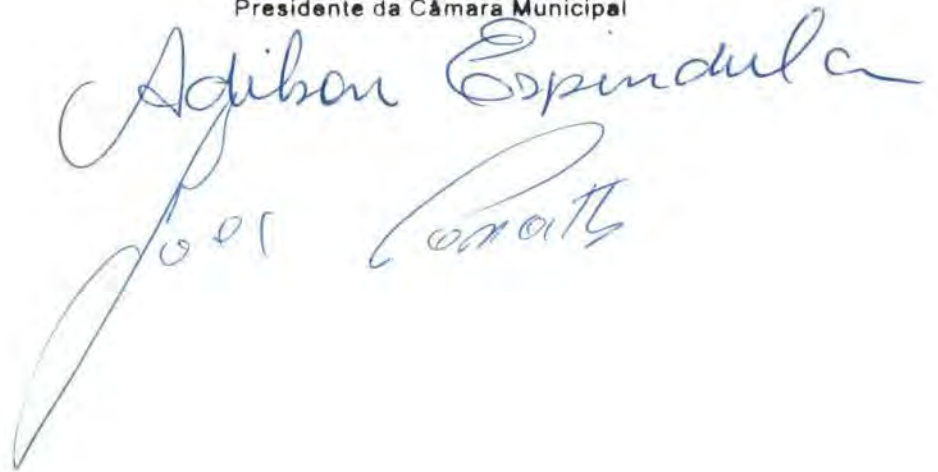 Presidente da Câmara Municipal
Adilson Espindula
Joel Ponath